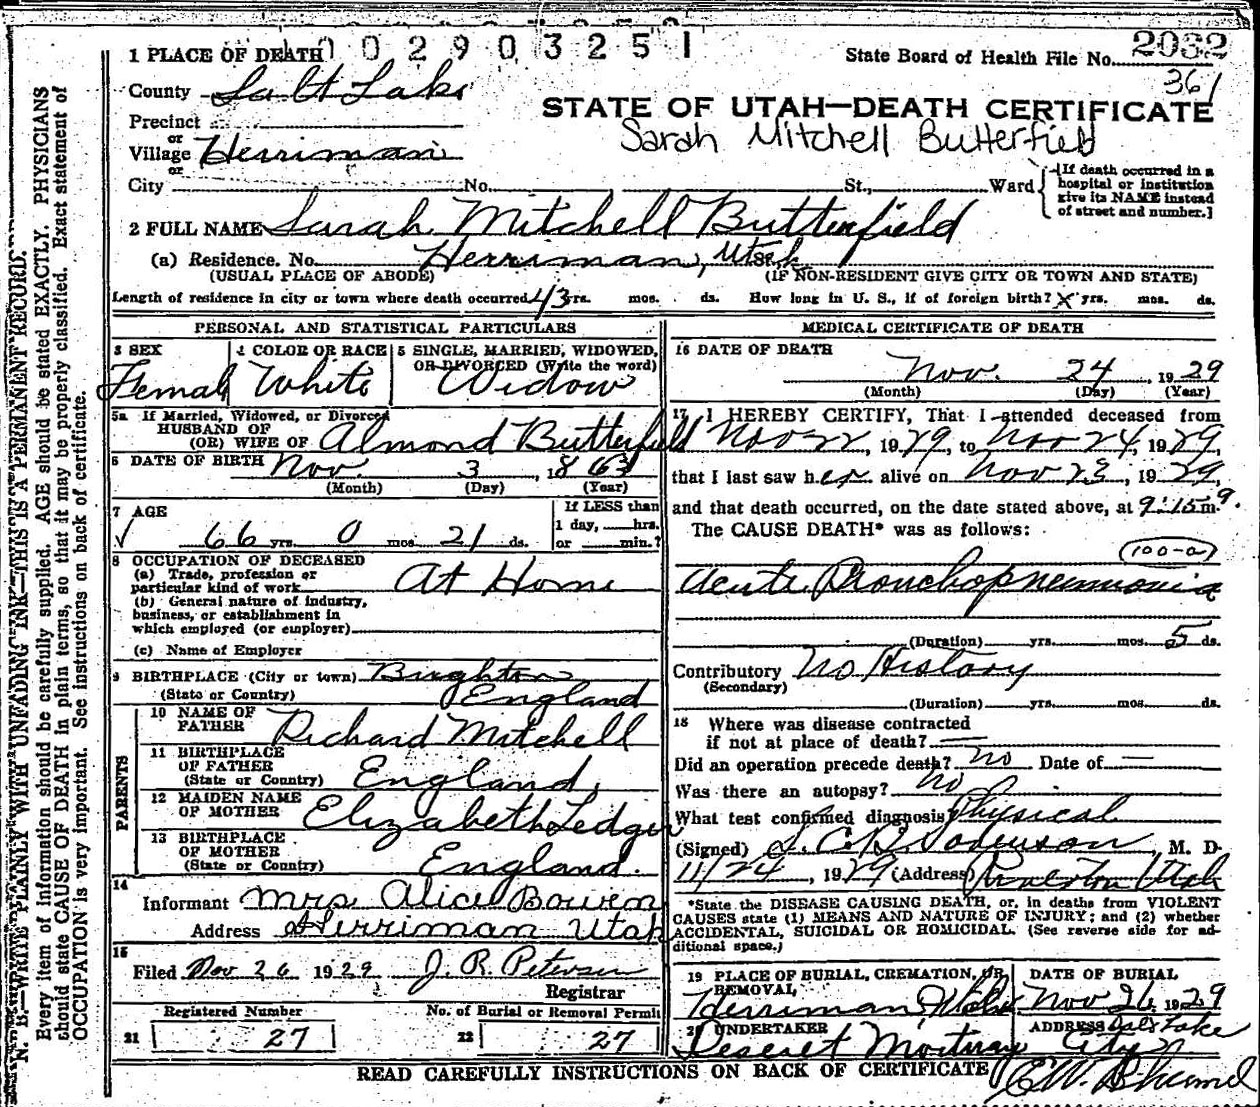 1 PLACE OF DEATH
0 0 2 9 0 3 2 5 1
State Board of Health File No. 2032
361
County Salt Lake
STATE OF UTAH—DEATH CERTIFICATE
Precinct
or
Village Herriman
Sarah Mitchell Butterfield
or
City No. St., Ward
[If death occurred in a
hospital or institution
give its NAME instead
of street and number.]
2 FULL NAME Sarah Mitchell Butterfield
(a) Residence. No. Herriman, Utah
(USUAL PLACE OF ABODE) (IF NON-RESIDENT GIVE CITY OR TOWN AND STATE)
Length of residence in city or town where death occurred 43 yrs. mos. ds. How long in U. S., if of foreign birth? X yrs. mos. ds.
PERSONAL AND STATISTICAL PARTICULARS
3 SEX
Female
4 COLOR OR RACE
White
5 SINGLE, MARRIED, WIDOWED,
OR DIVORCED (Write the word)
Widow
5a If Married, Widowed, or Divorced
HUSBAND OF
(OR) WIFE OF Almond Butterfield
6 DATE OF BIRTH Nov. 3, 1863
(Month) (Day) (Year)
7 AGE
√ 66 yrs. 0 mos. 21 ds.
If LESS than
1 day, hrs.
or min.?
8 OCCUPATION OF DECEASED
(a) Trade, profession or
particular kind of work At Home
(b) General nature of industry,
business, or establishment in
which employed (or employer)
(c) Name of Employer
9 BIRTHPLACE (City or town) Brighton
(State or Country) England
PARENTS
10 NAME OF
FATHER Richard Mitchell
11 BIRTHPLACE
OF FATHER
(State or Country) England
12 MAIDEN NAME
OF MOTHER Elizabeth Ledger
13 BIRTHPLACE
OF MOTHER
(State or Country) England.
14
Informant Mrs. Alice Bowen
Address Herriman Utah
15
Filed Nov 26 1929 J. R. Peterson
Registrar
Registered Number No. of Burial or Removal Permit
21 27 22 27
MEDICAL CERTIFICATE OF DEATH
16 DATE OF DEATH
Nov. 24, 1929
(Month) (Day) (Year)
17 I HEREBY CERTIFY, That I attended deceased from
Nov 22, 1929, to Nov 24, 1929,
that I last saw her alive on Nov 23, 1929,
and that death occurred, on the date stated above, at 9:15 m.
The CAUSE DEATH* was as follows:
(100-a)
Acute Bronchopneumonia
(Duration) yrs. mos. 5 ds.
Contributory No History
(Secondary)
(Duration) yrs. mos. ds.
18 Where was disease contracted
if not at place of death? —
Did an operation precede death? No Date of —
Was there an autopsy? no
What test confirmed diagnosis? Physical
(Signed) M. D.
11/24, 1929 (Address) Riverton Utah
*State the DISEASE CAUSING DEATH, or, in deaths from VIOLENT
CAUSES state (1) MEANS AND NATURE OF INJURY; and (2) whether
ACCIDENTAL, SUICIDAL OR HOMICIDAL. (See reverse side for ad-
ditional space.)
19 PLACE OF BURIAL, CREMATION, OR
REMOVAL
Herriman, Utah
DATE OF BURIAL
Nov 26, 1929
20 UNDERTAKER
Deseret Mortuary
ADDRESS Salt Lake
City
READ CAREFULLY INSTRUCTIONS ON BACK OF CERTIFICATE
N. B.—WRITE PLAINLY WITH UNFADING INK—THIS IS A PERMANENT RECORD.
Every item of information should be carefully supplied. AGE should be stated EXACTLY. PHYSICIANS
should state CAUSE OF DEATH in plain terms, so that it may be properly classified. Exact statement of
OCCUPATION is very important. See instructions on back of certificate.